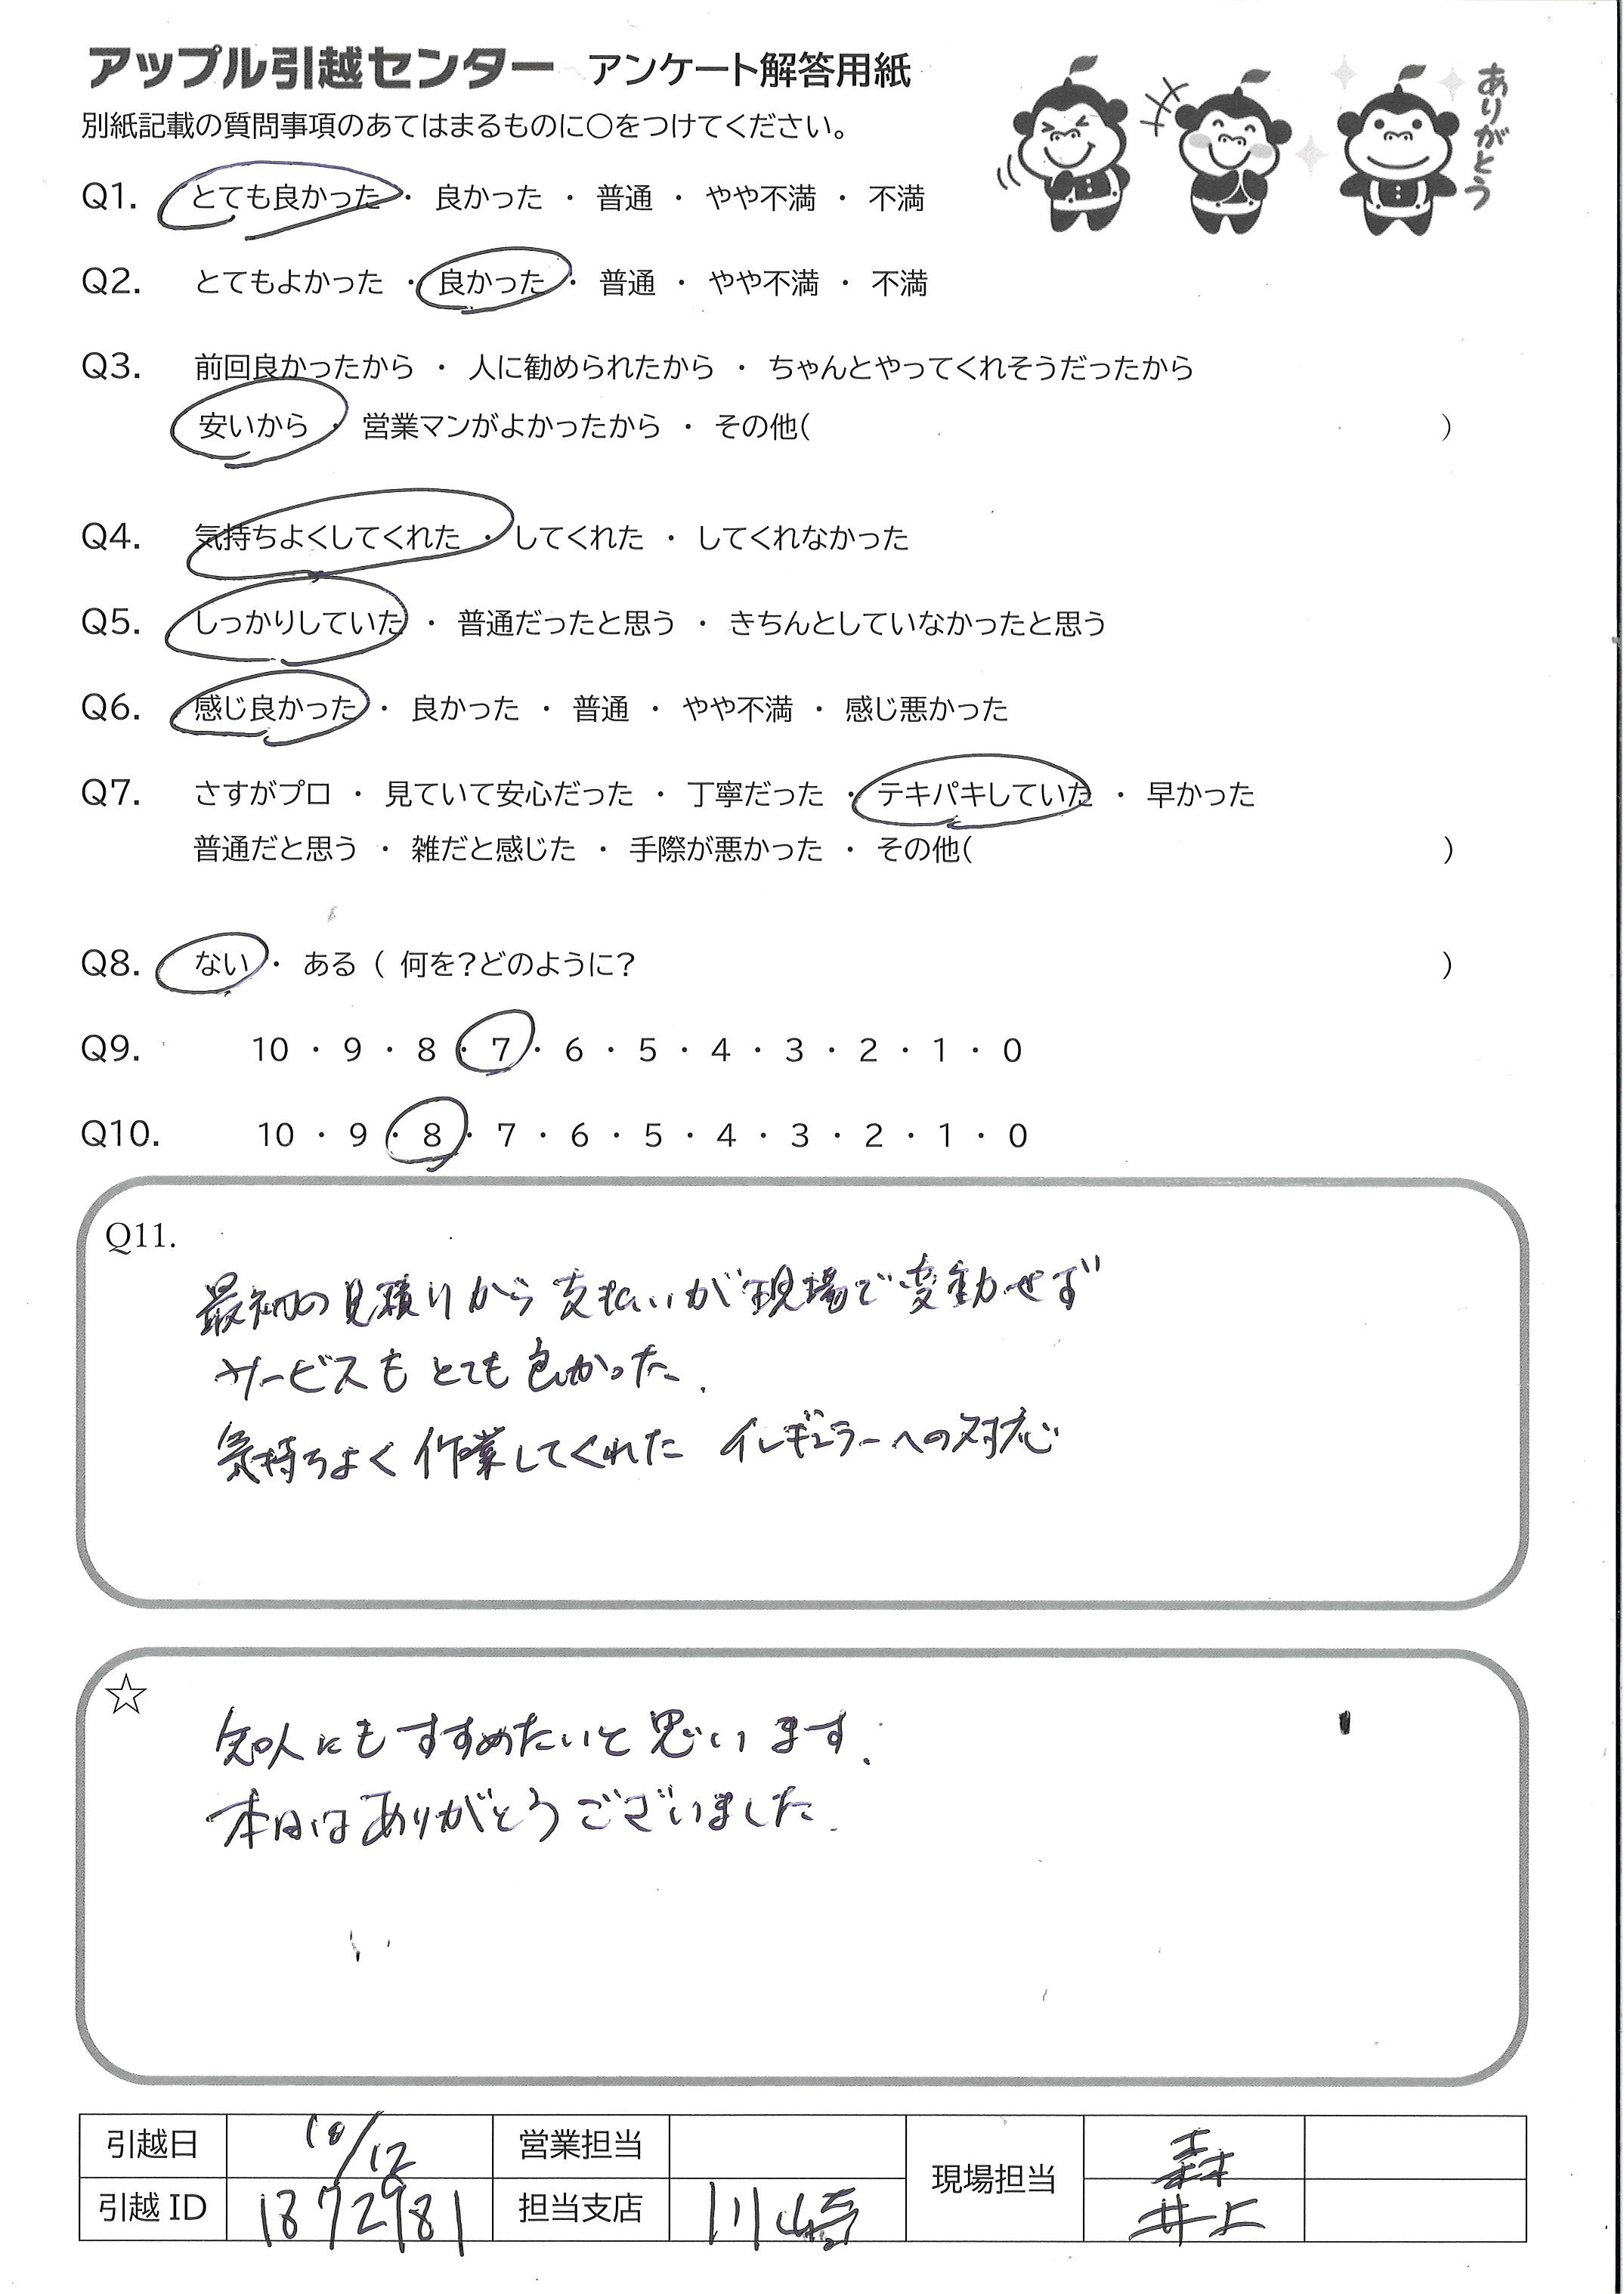 アップル引越センター アンケート解答用紙
別紙記載の質問事項のあてはまるものに○をつけてください。
ありがとう
Q1. とても良かった ・ 良かった ・ 普通 ・ やや不満 ・ 不満
Q2. とてもよかった ・ 良かった ・ 普通 ・ やや不満 ・ 不満
Q3. 前回良かったから ・ 人に勧められたから ・ ちゃんとやってくれそうだったから
安いから ・ 営業マンがよかったから ・ その他( )
Q4. 気持ちよくしてくれた ・ してくれた ・ してくれなかった
Q5. しっかりしていた ・ 普通だったと思う ・ きちんとしていなかったと思う
Q6. 感じ良かった ・ 良かった ・ 普通 ・ やや不満 ・ 感じ悪かった
Q7. さすがプロ ・ 見ていて安心だった ・ 丁寧だった ・ テキパキしていた ・ 早かった
普通だと思う ・ 雑だと感じた ・ 手際が悪かった ・ その他( )
Q8. ない ・ ある ( 何を?どのように? )
Q9. 10 ・ 9 ・ 8 ・ 7 ・ 6 ・ 5 ・ 4 ・ 3 ・ 2 ・ 1 ・ 0
Q10. 10 ・ 9 ・ 8 ・ 7 ・ 6 ・ 5 ・ 4 ・ 3 ・ 2 ・ 1 ・ 0
Q11.
最初の見積りから支払いが現場で変動せず
サービスもとても良かった.
気持ちよく作業してくれた イレギュラーへの対応
☆
知人にもすすめたいと思います.
本日はありがとうございました.
引越日 10/12 営業担当 現場担当 森
引越ID 1872981 担当支店 川崎 井上